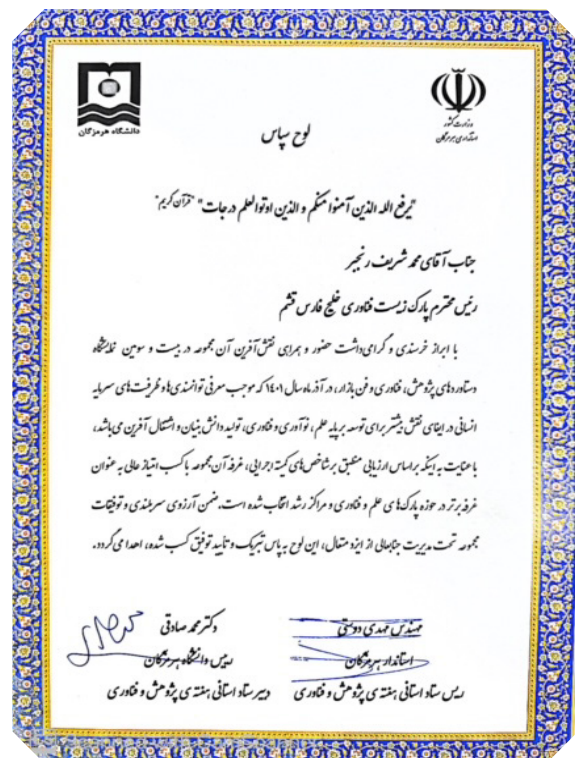 دانشگاه هرمزگان
وزارت کشور
استانداری هرمزگان
لوح سپاس
"یرفع الله الذین آمنوا منکم و الذین اوتوالعلم درجات" "قرآن کریم"
جناب آقای محمد شریف رنجبر
رئیس محترم پارک زیست فناوری خلیج فارس قشم
با ابراز خرسندی و گرامی‌داشت حضور و همراهی نقش‌آفرین آن مجموعه در بیست و سومین نمایشگاه
دستاوردهای پژوهش، فناوری و فن بازار، در آذرماه سال ۱٤۰۱ که موجب معرفی توانمندی‌ها و ظرفیت‌های سرمایه
انسانی در ایفای نقش بیشتر برای توسعه بر پایه علم، نوآوری و فناوری، تولید دانش بنیان و اشتغال آفرین می‌باشد،
با عنایت به اینکه براساس ارزیابی منطبق بر شاخص‌های کمیته اجرایی، غرفه آن مجموعه با کسب امتیاز عالی به عنوان
غرفه برتر در حوزه پارک‌های علم و فناوری و مراکز رشد انتخاب شده است. ضمن آرزوی سربلندی و توفیقات
مجموعه تحت مدیریت جنابعالی از ایزد متعال، این لوح به پاس تبریک و تأیید توفیق کسب شده، اهدا می‌گردد.
مهندس مهدی دوستی
استاندار هرمزگان
ریس ستاد استانی هفته ی پژوهش و فناوری
دکتر محمد صادقی
رییس دانشگاه هرمزگان
دبیر ستاد استانی هفته ی پژوهش و فناوری